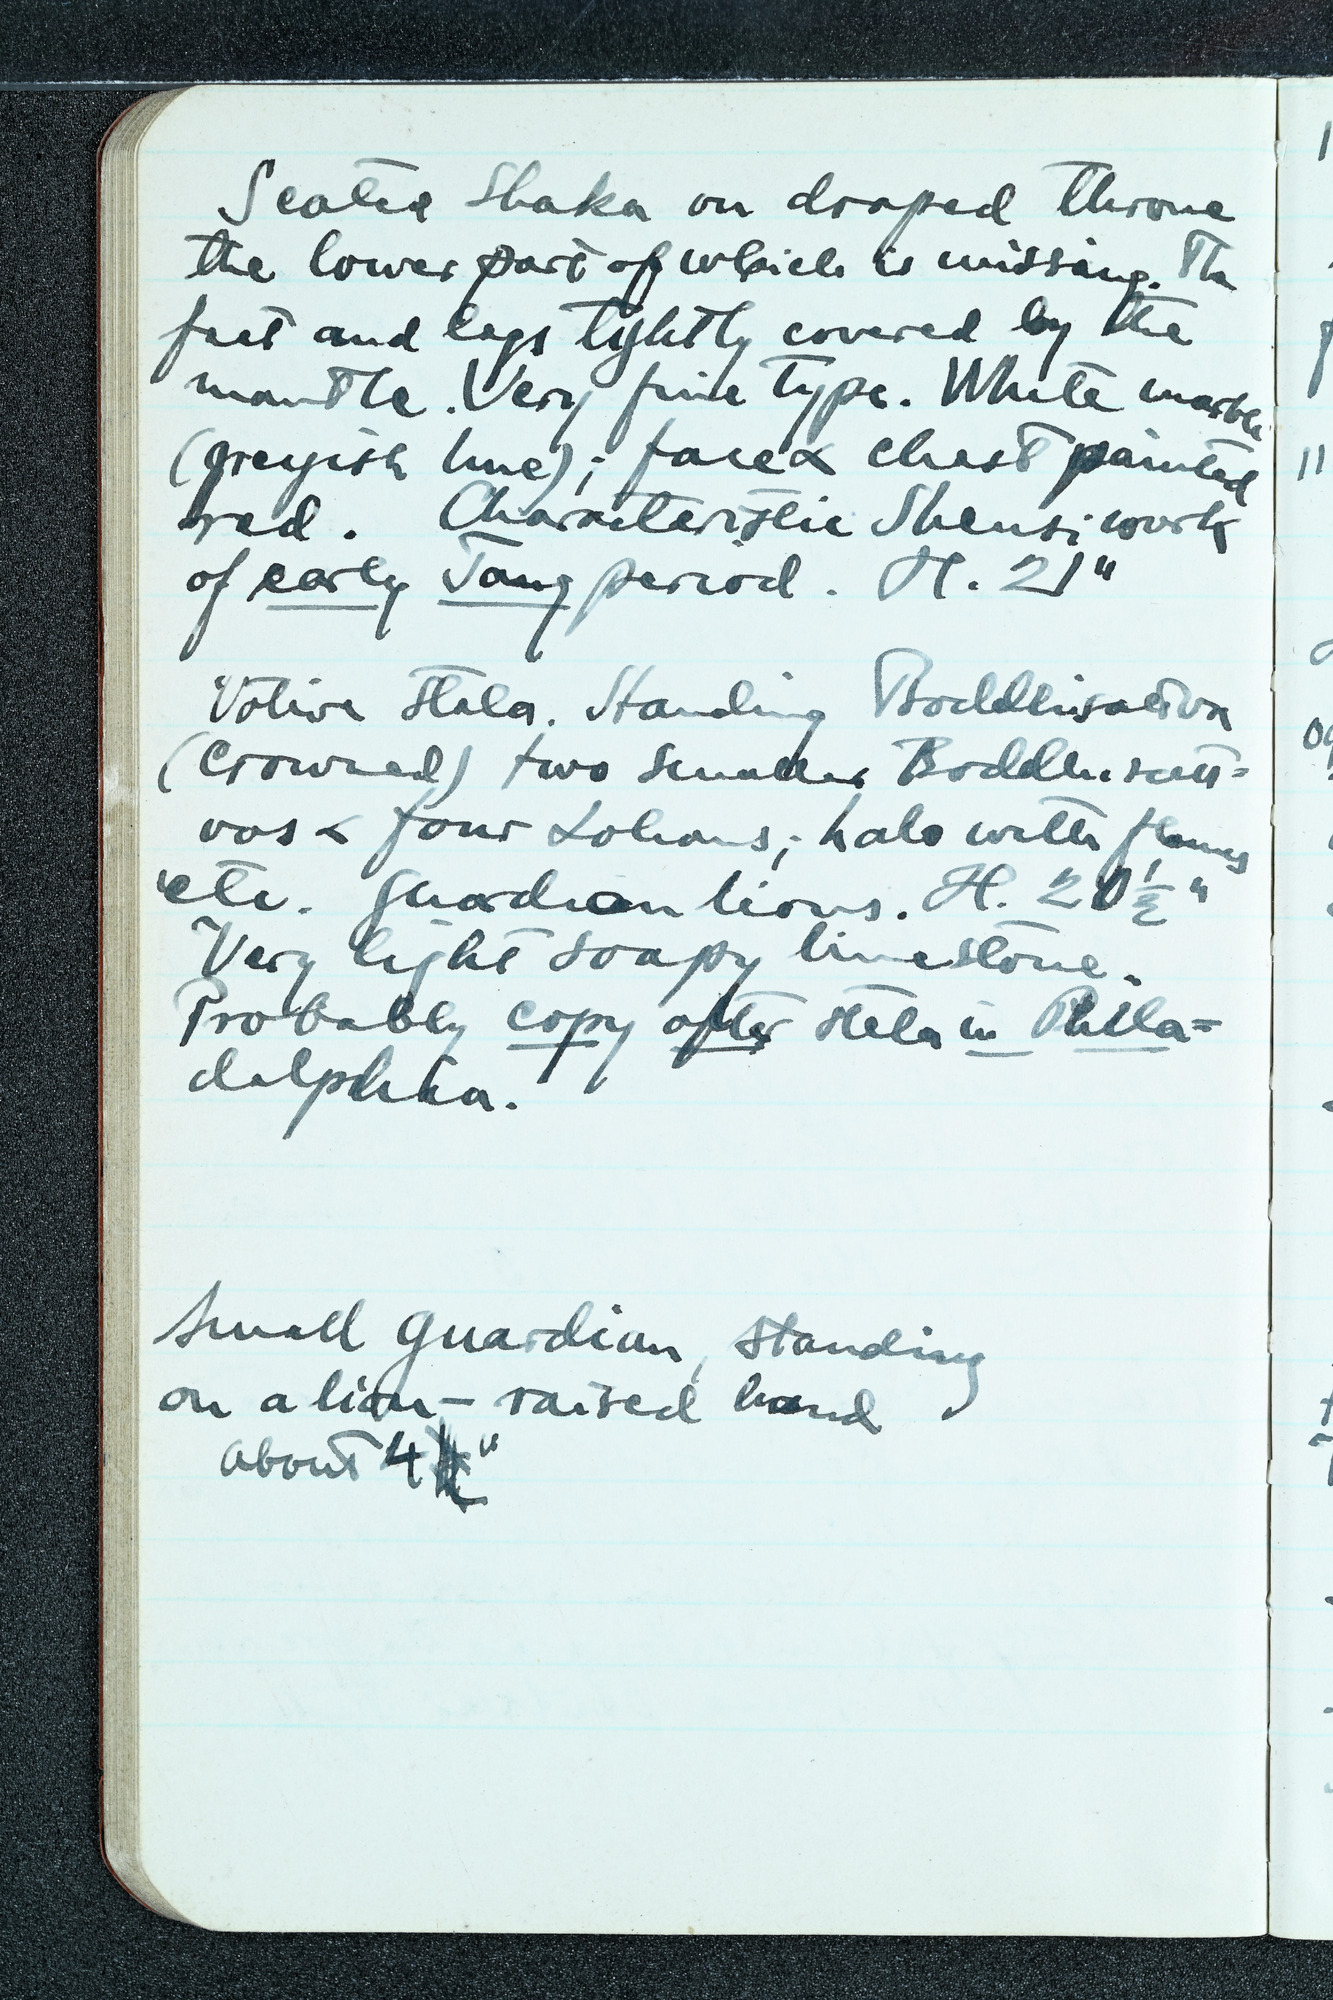 Seated Shaka on draped throne
the lower part of which is missing. The
feet and legs tightly covered by the
mantle. Very fine type. White marble
(greyish hue); face & chest painted
red. Characteristic Shensi work
of early Tang period. H. 21"
Votive stela. Standing Boddhisattva
(crowned) two smaller Boddhisatt=
vas & four Lohans; halo with flames
etc. Guardian lions. H. 20 1/2"
Very light soapy limestone.
Probably copy after stela in Phila=
delphia.
Small guardian, standing
on a lion – raised hand
about 4"